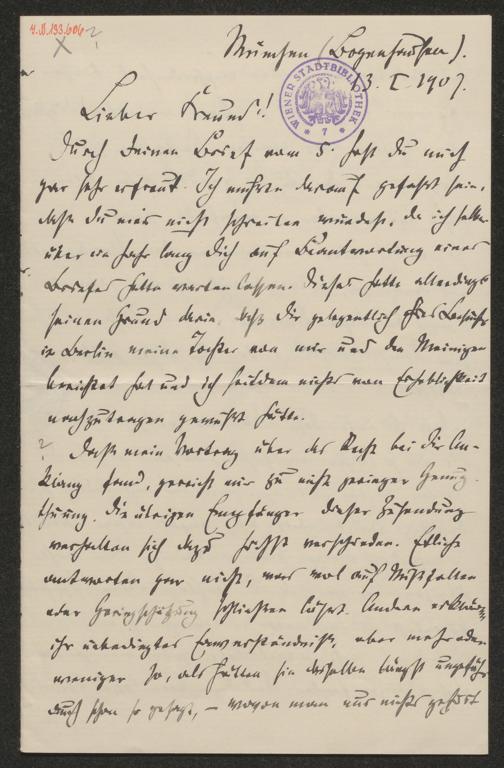 4.N.133.606
München (Bogenhausen).
WIENER STADTBIBLIOTHEK
7
13. I 1907.
Lieber Freund!
Durch Deinen Brief vom 5. hast Du mich
gar sehr erfreut. Ich mußte darauf gefaßt sein,
daß Du mir nicht schreiben würdest, da ich selbst
über ein Jahr lang Dich auf Beantwortung eines
Briefes hatte warten lassen. Dieses hatte allerdings
seinen Grund darin, daß Dir gelegentlich Besuchs
in Berlin meine Tochter von mir und den Meinigen
berichtet hat und ich seitdem nichts von Erheblichkeit
nachzutragen gewußt hätte.
? Daß mein Vortrag über das Recht bei Dir An-
klang fand, gereicht mir zu nicht geringer Genug-
thuung. Die übrigen Empfänger dieser Zusendung
verhalten sich dazu höchst verschieden. Etliche
antworten gar nicht, was wol auf Mißfallen
oder Geringschätzung schließen läßt. Andere erklären
ihr unbedingtes Einverständniß, aber mehr oder
weniger so, als hätten sie dasselbe längst ungefähr
auch schon so gesagt, – wovon man nur nichts gehört